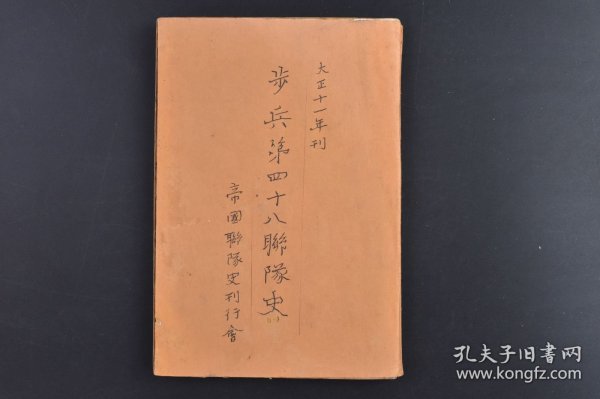 大正十一年刊
步兵第四十八聯隊史
帝國聯隊史刊行會
孔夫子旧书网
www.kongfz.com